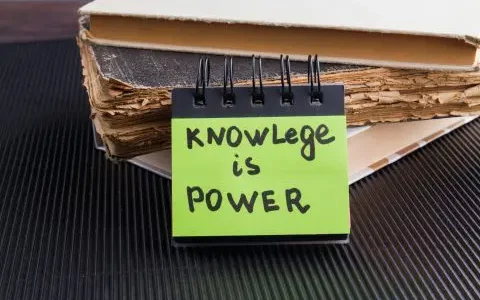 KNOWLege
is
POWER